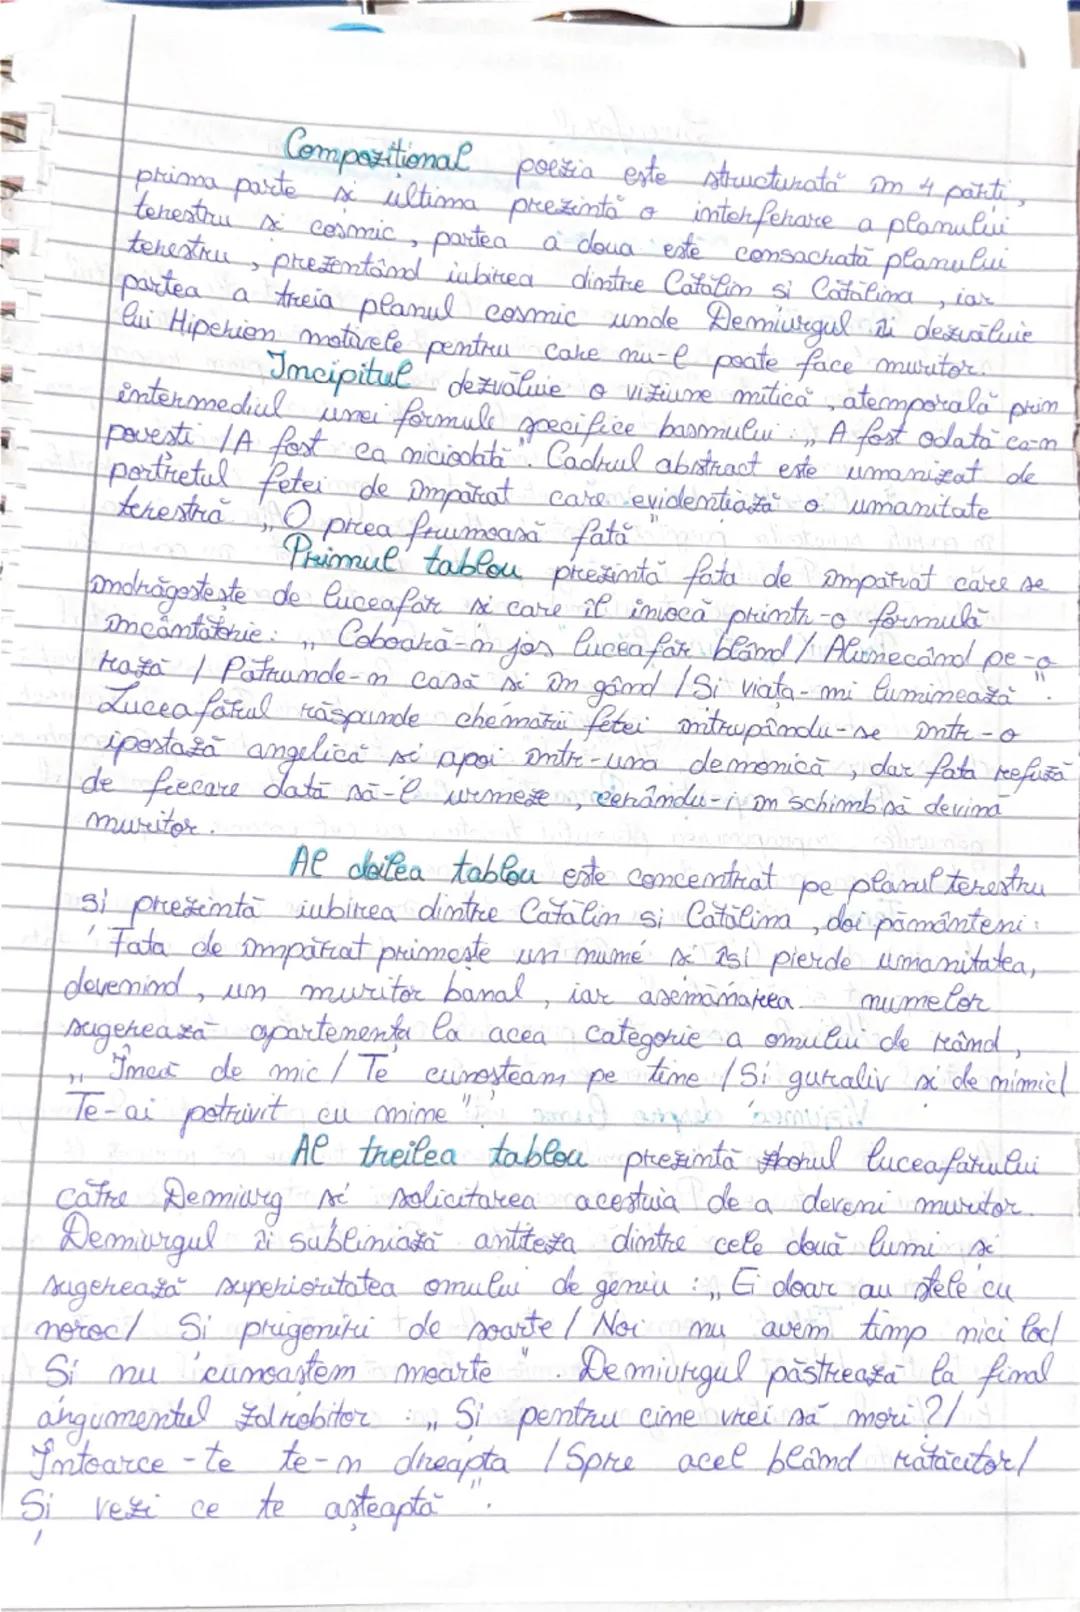 Compozițional poezia este structurată în 4 părți,
prima parte și ultima prezintă o interferare a planului
terestru și cosmic, partea a doua este consacrată planului
terestru, prezentând iubirea dintre Cătălin si Cătălina, iar
partea a treia planul cosmic unde Demiurgul îi dezvăluie
lui Hiperion motivele pentru care nu-l poate face muritor.
Incipitul dezvăluie o viziune mitică, atemporală prin
intermediul unei formule specifice basmului: „A fost odată ca-n
povesti /A fost ca niciodată". Cadrul abstract este umanizat de
portretul fetei de împărat care evidentiază o umanitate
terestră „O prea frumoasă fată"
Primul tablou prezintă fata de împărat care se
îndrăgosteste de luceafăr și care îl invocă printr-o formulă
încântătorie: „Coboară-n jos luceafăr blând / Alunecând pe-o
rază / Pătrunde-n casă și în gând /Si viața-mi luminează".
Luceafărul răspunde chemării fetei întrupându-se într-o
ipostază angelică și apoi într-una demonică, dar fata refuză
de fiecare dată să-l urmeze, cerându-i în schimb să devină
muritor.
Al doilea tablou este concentrat pe planul terestru
și prezintă iubirea dintre Cătălin și Cătălina, doi pământeni:
Fata de împărat primește un nume și își pierde umanitatea,
devenind, un muritor banal, iar asemănarea numelor
sugerează apartenența la acea categorie a omului de rând,
„Încă de mic / Te cunosteam pe tine /Si guraliv și de nimic/
Te-ai potrivit cu mine".
Al treilea tablou prezintă zborul luceafărului
către Demiurg și solicitarea acestuia de a deveni muritor.
Demiurgul îi subliniază antiteza dintre cele două lumi și
sugerează superioritatea omului de geniu: „Ei doar au stele cu
noroc/ Și prigoniri de soarte / Noi nu avem timp nici loc/
Și nu cunoaștem moarte". Demiurgul păstrează la final
argumentul zdrobitor: „Și pentru cine vrei să mori?/
Întoarce-te te-n dreapta /Spre acel blând rătăcitor/
Și vezi ce te așteaptă".